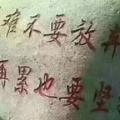 难不要放弃
再累也要坚